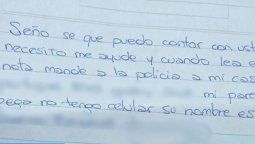 Seño se que puedo contar con ust
necesito me ayude y cuando lea e
nota mande a la policia a mi cas
mi pare
pega no tengo celular su nombre es